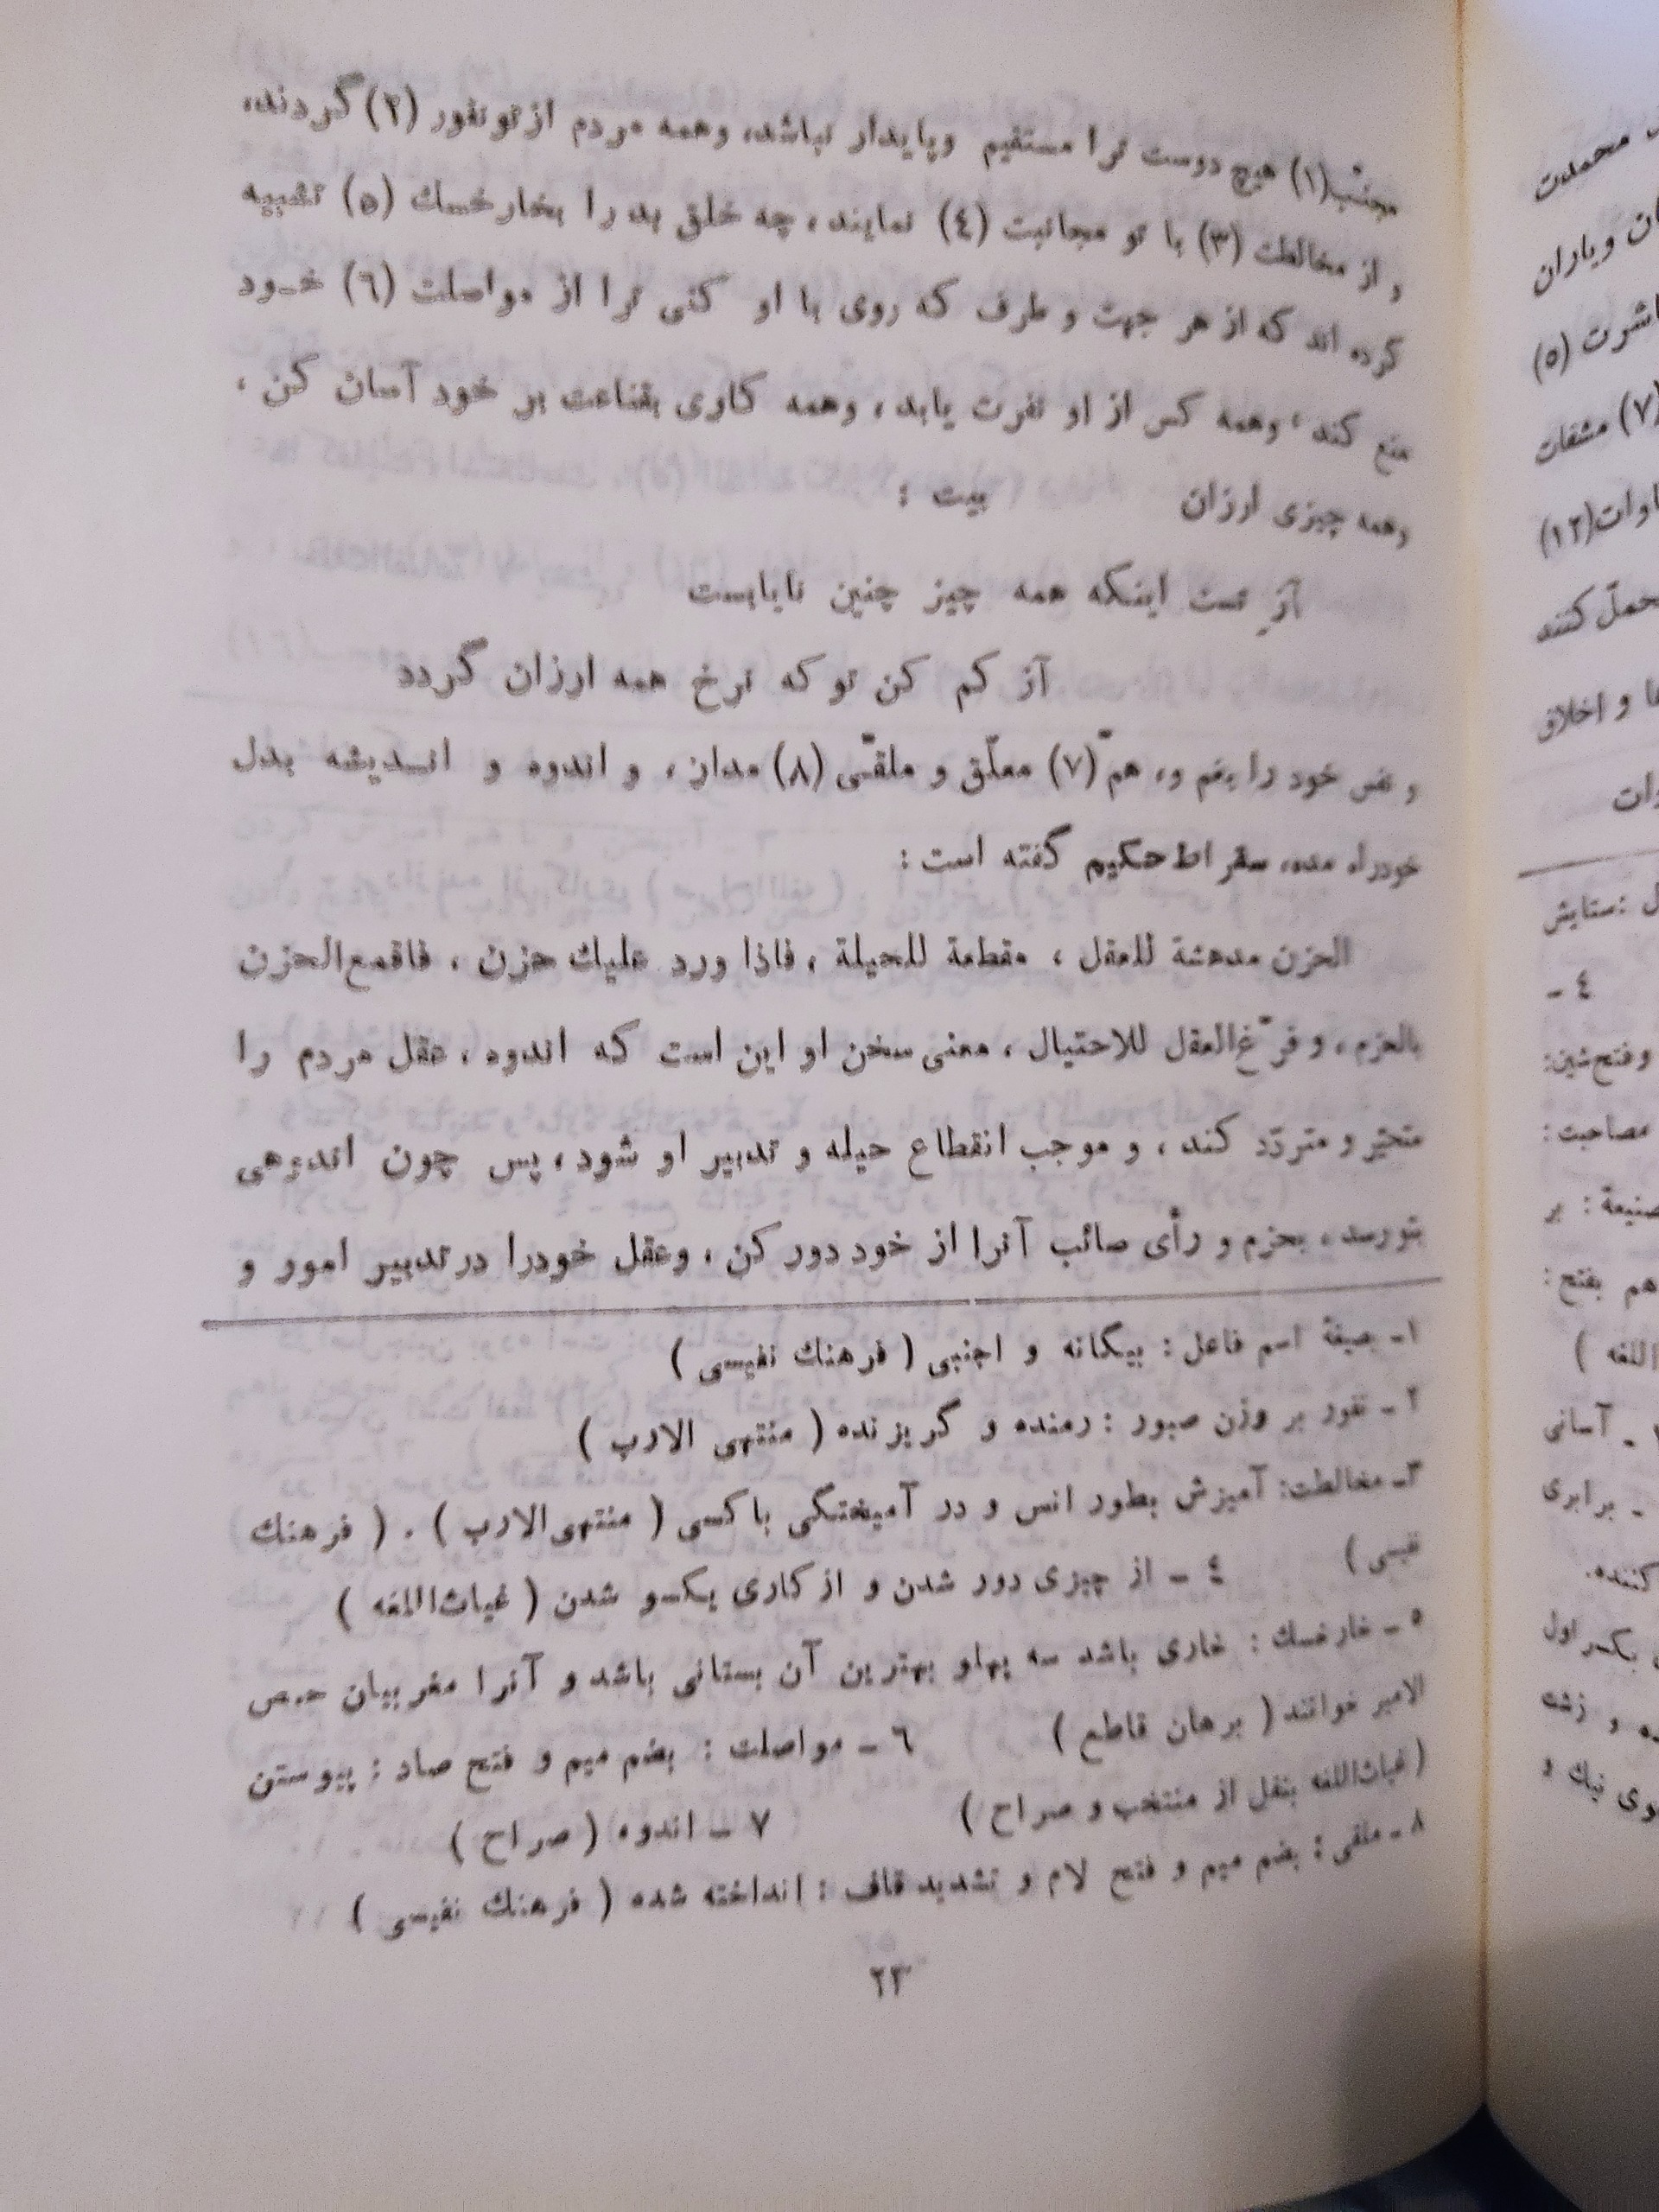 مجتنب(۱) هیچ دوست ترا مستقیم وپایدار نباشد، وهمه مردم ازتونفور (۲) گردند،
و از مخالطت (۳) با تو مجانبت (٤) نمایند، چه خلق بد را بخارخسك (٥) تشبیه
کرده اند که از هر جهت و طرف که روی با او کنی ترا از مواصلت (٦) خود
منع کند، وهمه کس از او نفرت یابد، وهمه کاری بقناعت بر خود آسان کن،
وهمه چیزی ارزان بیت :
آزِ تست اینکه همه چیز چنین نایابست
آز کم کن تو که نرخ همه ارزان گردد
و نفس خود را بغم و، همّ (۷) معلّق و ملقّی (۸) مدار، و اندوه و اندیشه بدل
خودراه مده، سقراط حکیم گفته است :
الحزن مدهشة للعقل ، مقطعة للحیلة ، فاذا ورد علیك حزن ، فاقمع الحزن
بالحزم ، و فرّغ العقل للاحتیال ، معنی سخن او این است که اندوه ، عقل مردم را
متحیّر و متردّد کند ، و موجب انقطاع حیله و تدبیر او شود ، پس چون اندوهی
بتورسد ، بحزم و رأی صائب آنرا از خود دور کن ، وعقل خودرا درتدبیر امور و
۱ـ صیغهٔ اسم فاعل : بیگانه و اجنبی ( فرهنك نفیسی )
۲ ـ نفور بر وزن صبور : رمنده و گریزنده ( منتهی الارب )
۳ـ مخالطت: آمیزش بطور انس و در آمیختگی باکسی ( منتهی‌الارب ) . ( فرهنك
نفیسی ) ٤ ـ از چیزی دور شدن و از کاری یکسو شدن ( غیاث‌اللغه )
٥ ـ خارخسك : خاری باشد سه پهلو بهترین آن بستانی باشد و آنرا مغربیان حمص
الامیر خوانند ( برهان قاطع ) ٦ ـ مواصلت : بضم میم و فتح صاد : پیوستن
( غیاث‌اللغه بنقل از منتخب و صراح ) ۷ ـ اندوه ( صراح )
۸ ـ ملقی : بضم میم و فتح لام و تشدید قاف : انداخته شده ( فرهنك نفیسی )
۲۳
محمدت
ویاران
(٥)
(۷) مشقات
(۱۲)
کنند
و اخلاق
: ستایش
٤ ـ
وفتح شین:
مصاحبت :
: بر
هم بفتح :
اللغه )
ـ آسانی
ـ برابری
کننده.
بکسر اول
و زشت
نیك و